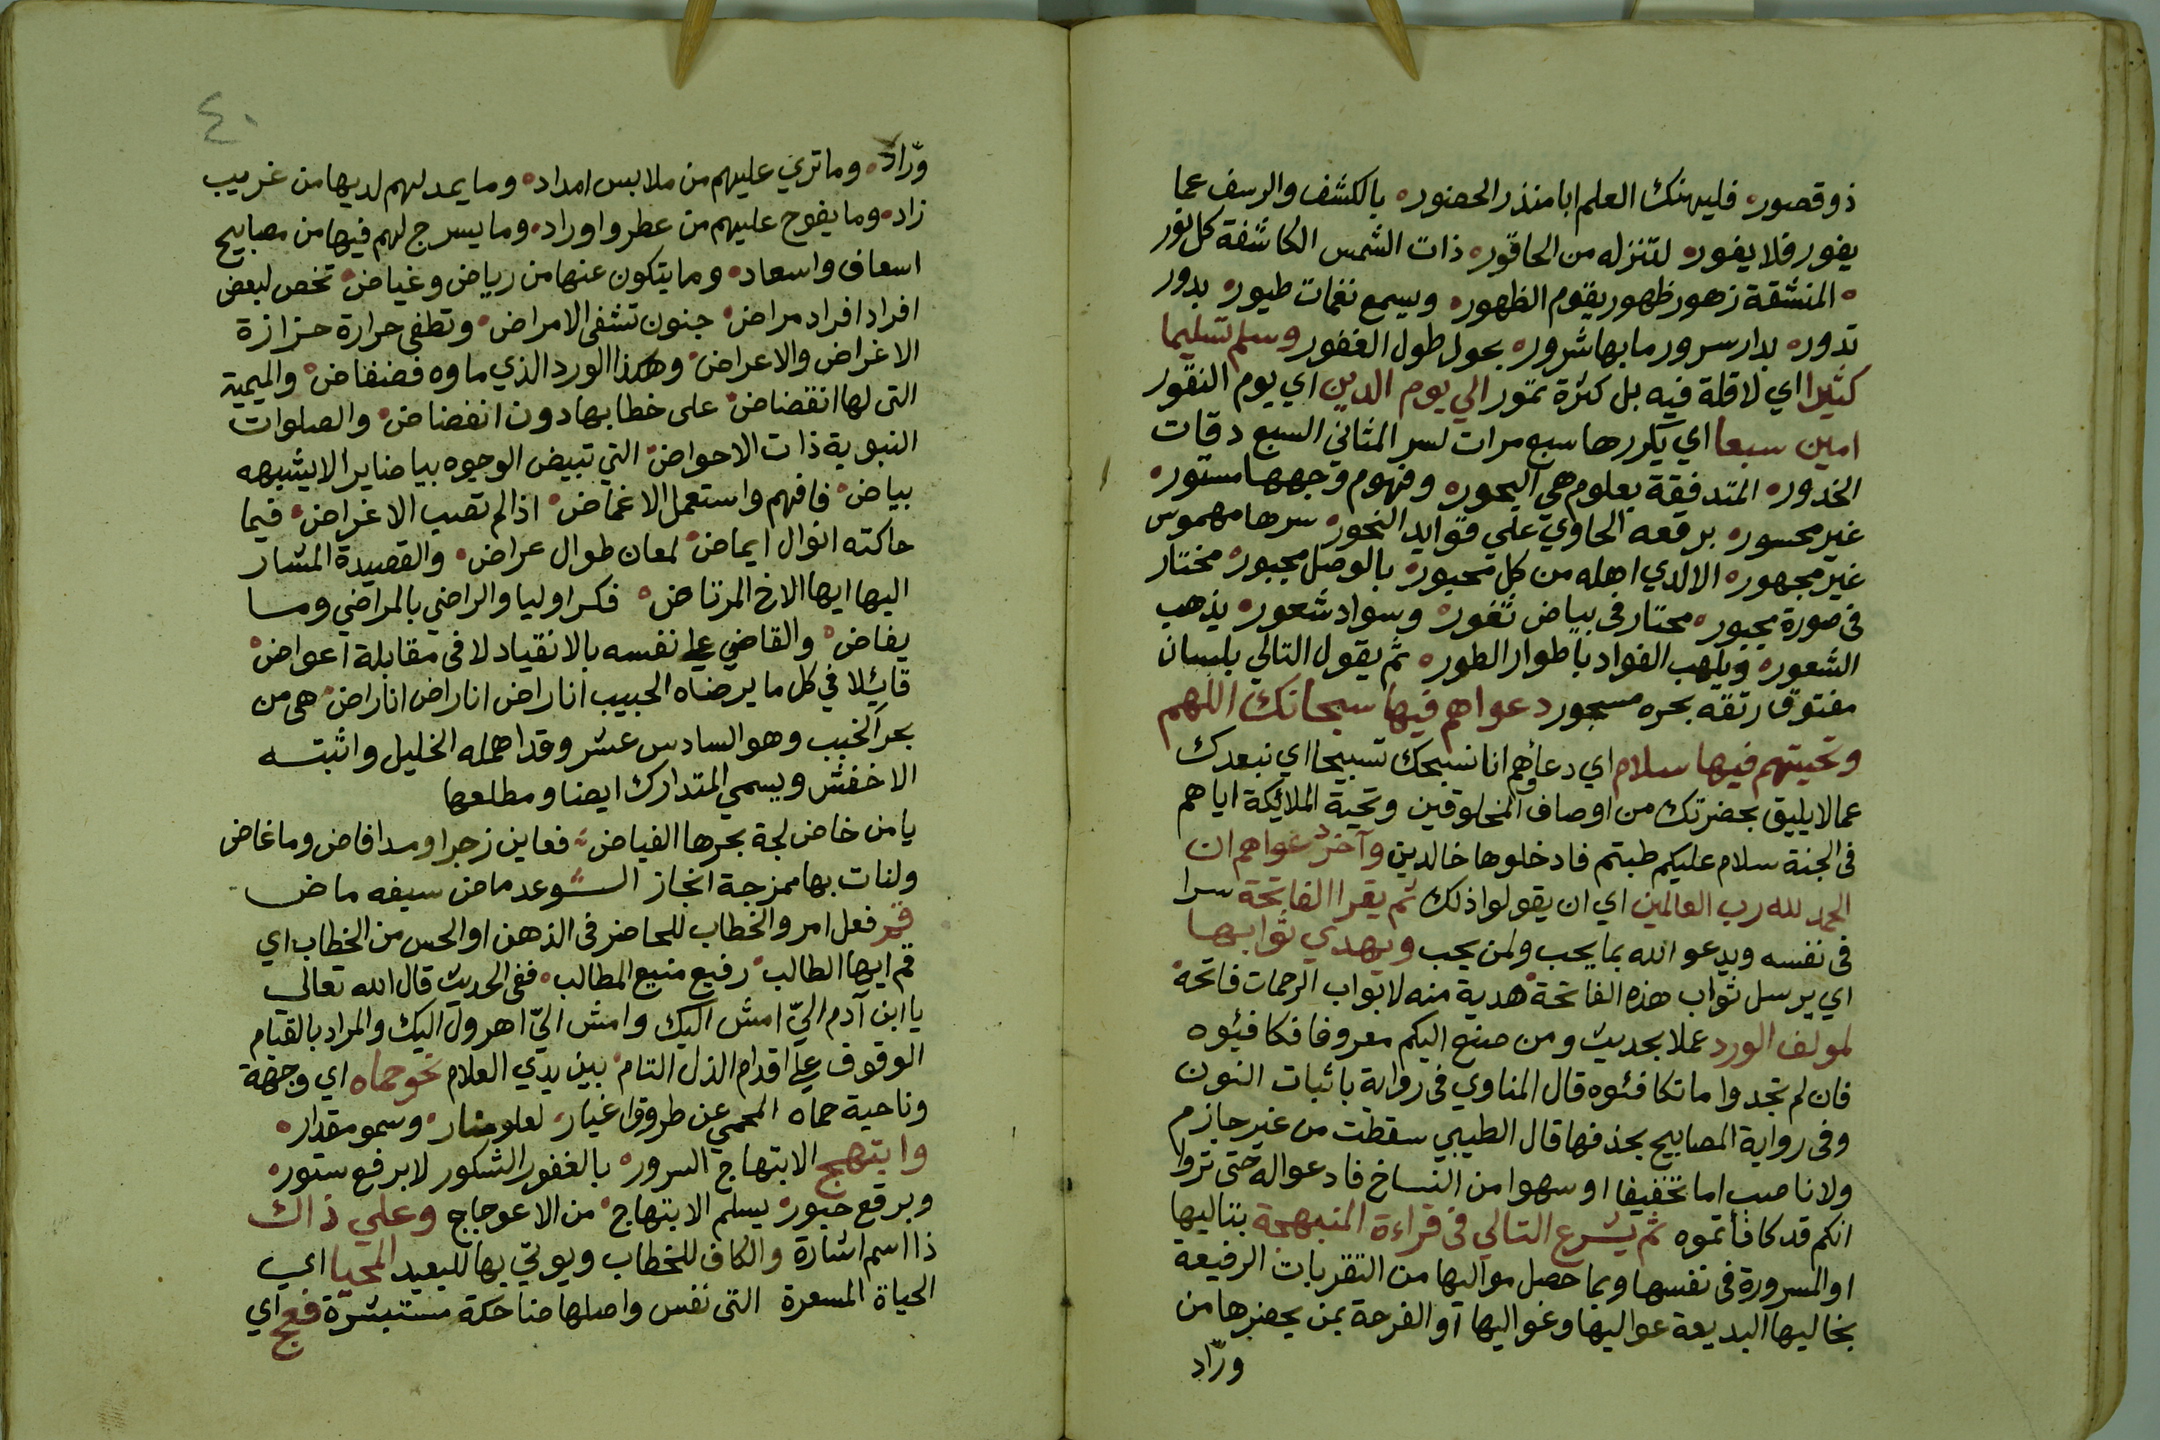 ذوقصور فليهنك العلم ابا منذر الحضور بالكشف والرسف عما
يفور فلا يغور لتنزله من الحاقور ذات الشمس الكاشفة كل نور
المنشقة زهور ظهور يقوم الظهور ويسمع نغمات طيور بدور
تدور بدار سرور ما بها شرور بحول طول الغفور وسلم تسليما
كثيرا اي لاقلة فيه بل كثرة تمور الي يوم الدين اي يوم النقور
امين سبعا اي يكررها سبع مرات لسر المثاني السبع دقات
الخدور المتدفقة بعلوم هي البحور وفهوم وجهها مستور
غير محسور برقعه الحاوي علي فوايد النحور سرها مهموس
غير مجهور الا لدي اهله من كل محبور بالوصل مجبور مختار
في صورة مجبور محتار في بياض ثغور وسواد شعور يذهب
الشعور ويلهب الفواد باطوار الطور ثم يقول التالي بلسان
مفتوق رتقه بحره مسجور دعواهم فيها سبحانك اللهم
وتحيتهم فيها سلام اي دعاؤهم انا نسبحك تسبيحا اي نبعدك
عما لا يليق بحضرتك من اوصاف المخلوقين وتحية الملائكة اياهم
في الجنة سلام عليكم طبتم فادخلوها خالدين وآخر دعواهم ان
الحمد لله رب العالمين اي ان يقولوا ذلك ثم يقرا الفاتحة سرا
في نفسه ويدعو الله بما يحب ولمن يحب ويهدي ثوابها
اي يرسل ثواب هذه الفاتحة هدية منه لابواب الرحمات فاتحة
لمولف الورد عملا بحديث ومن صنع اليكم معروفا فكافئوه
فان لم تجدوا ما تكافئوه قال المناوي في رواية باثبات النون
وفي رواية المصابيح بحذفها قال الطيبي سقطت من غير جازم
ولا ناصب اما تخفيفا او سهوا من النساخ فادعوا له حتى تروا
انكم قد كافأتموه ثم يشرع التالي في قراءة المنبهجة بتاليها
او المسرورة في نفسها وبما حصل مواليها من التقربات الرفيعة
بخاليها البديعة عواليها وغواليها او الفرحة بمن يحضرها من
ورّاد
٤٠
ورّاد وما تري عليهم من ملابس امداد وما يمد لهم لديها من غريب
زاد وما يفوح عليهم من عطر واوراد وما يسرج لهم فيها من مصابيح
اسعاف واسعاد وما يتكون عنها من رياض وغياض تخص لبعض
افراد افراد مراض جنون تشفى الامراض وتطفى حرارة حزازة
الاغراض والاعراض وهكذا الورد الذي ماوه فضفاض والميمية
التى لها انقضاض على خطابها دون انفضاض والصلوات
النبوية ذات الاحواض التي تبيض الوجوه بياضا يرا لا يشبهه
بياض فافهم واستعمل الاغماض اذا لم تصب الاغراض فيما
حاكته انوال ايماض لمعان طوال عراض والقصيدة المشار
اليها ايها الاخ المرتاض فكر اوليا والراضي بالمراضي وما
يفاض والقاضي علي نفسه بالانقياد لا في مقابلة اعواض
قايلا في كل ما يرضاه الحبيب انا راض انا راض انا راض هى من
بحر الخبب وهو السادس عشر وقد اهمله الخليل واثبته
الاخفش ويسمي المتدارك ايضا ومطلعها
يا من خاض لجة بحرها الفياض فعاين زجرا ومدا فاض وما غاض
ولنات بها ممزجة انجاز الوعد ماض سيفه ماض
قم فعل امر والخطاب للحاضر في الذهن او الحس من الخطاب اي
قم ايها الطالب رفيع منيع المطالب ففي الحديث قال الله تعالي
يا ابن آدم اليّ امش اليك وامش اليّ اهرول اليك والمراد بالقيام
الوقوف علي اقدام الذل التام بين يدي العلام نحو حماه اي وجهة
وناحية حماه المحمي عن طروق اغيار لعلو منار وسمو مقدار
وابتهج الابتهاج السرور بالغفور الشكور لا برفع ستور
وبرقع حبور يسلم الابتهاج من الاعوجاج وعلي ذاك
ذا اسم اشارة والكاف للخطاب ويوتي بها للبعيد المحيا اي
الحياة المسعرة التى نفس واصلها ضاحكة مستبشرة فعج اي